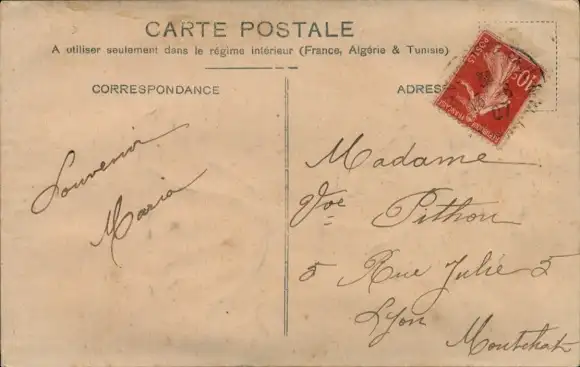 CARTE POSTALE
A utiliser seulement dans le régime intérieur (France, Algérie & Tunisie)
CORRESPONDANCE
ADRES
Souvenir
Maria
Madame
Vve Pithon
5 Rue Julie 5
Lyon
Montchat
10c
POSTES
07